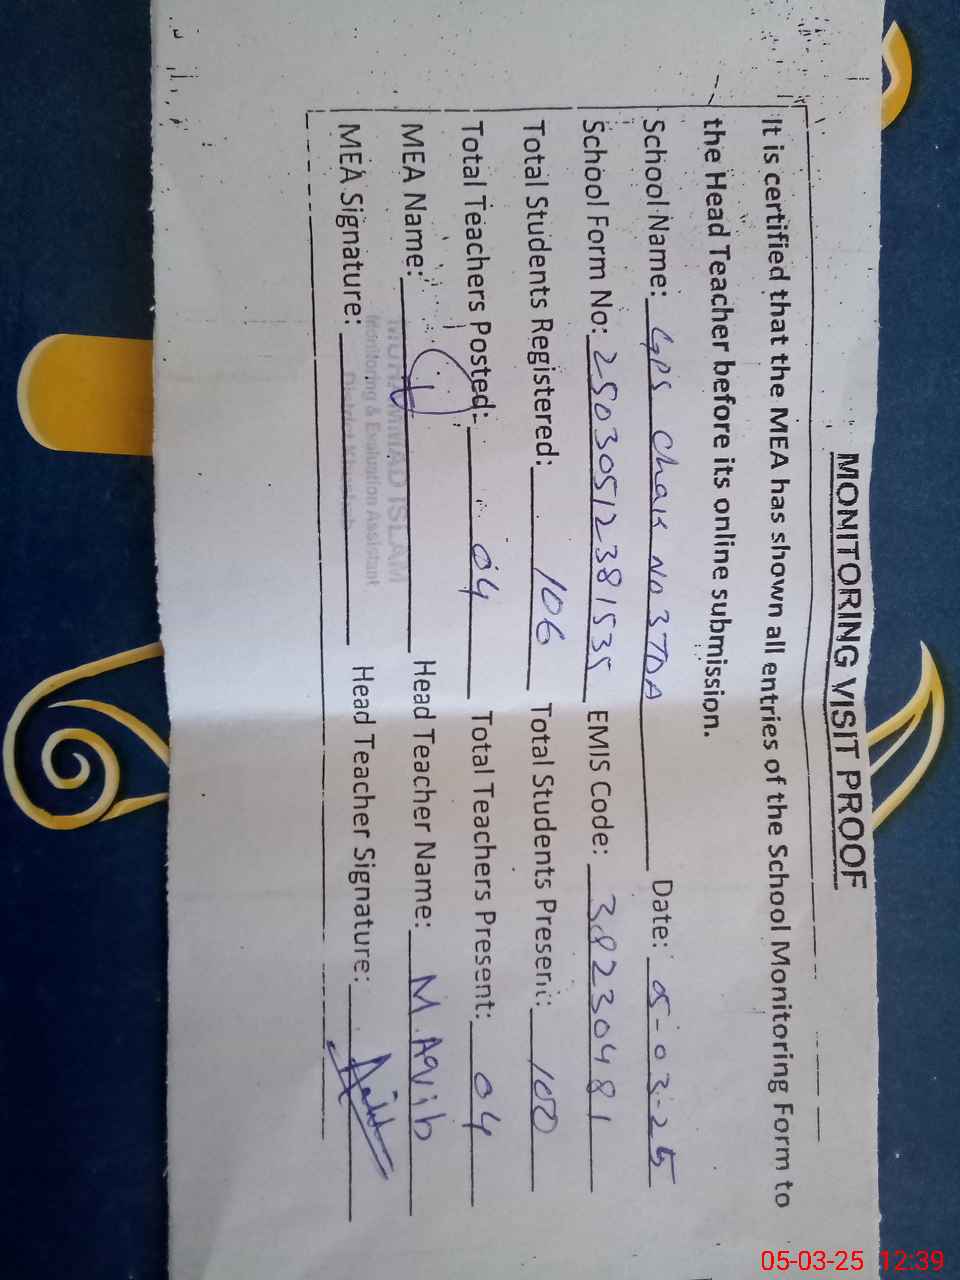 MONITORING VISIT PROOF
It is certified that the MEA has shown all entries of the School Monitoring Form to
the Head Teacher before its online submission.
School Name: GPS Chak No 3TDA Date: 05-03-25
School Form No: 25030512381535 EMIS Code: 38230481
Total Students Registered: 106 Total Students Present: 100
Total Teachers Posted: 04 Total Teachers Present: 04
MEA Name: Head Teacher Name: M. Aqib
MUHAMMAD ISLAM
Monitoring & Evaluation Assistant
District Khushab
MEA Signature: Head Teacher Signature:
05-03-25 12:39